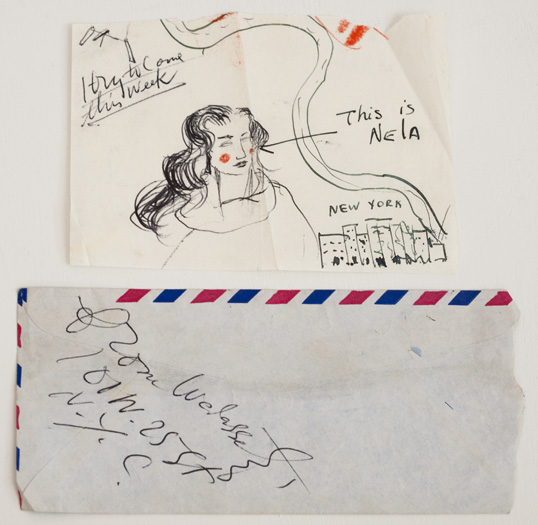 I try to Come
this week
This is
NElA
NEW YORK
From
101 W. 25 St
N.Y. C.